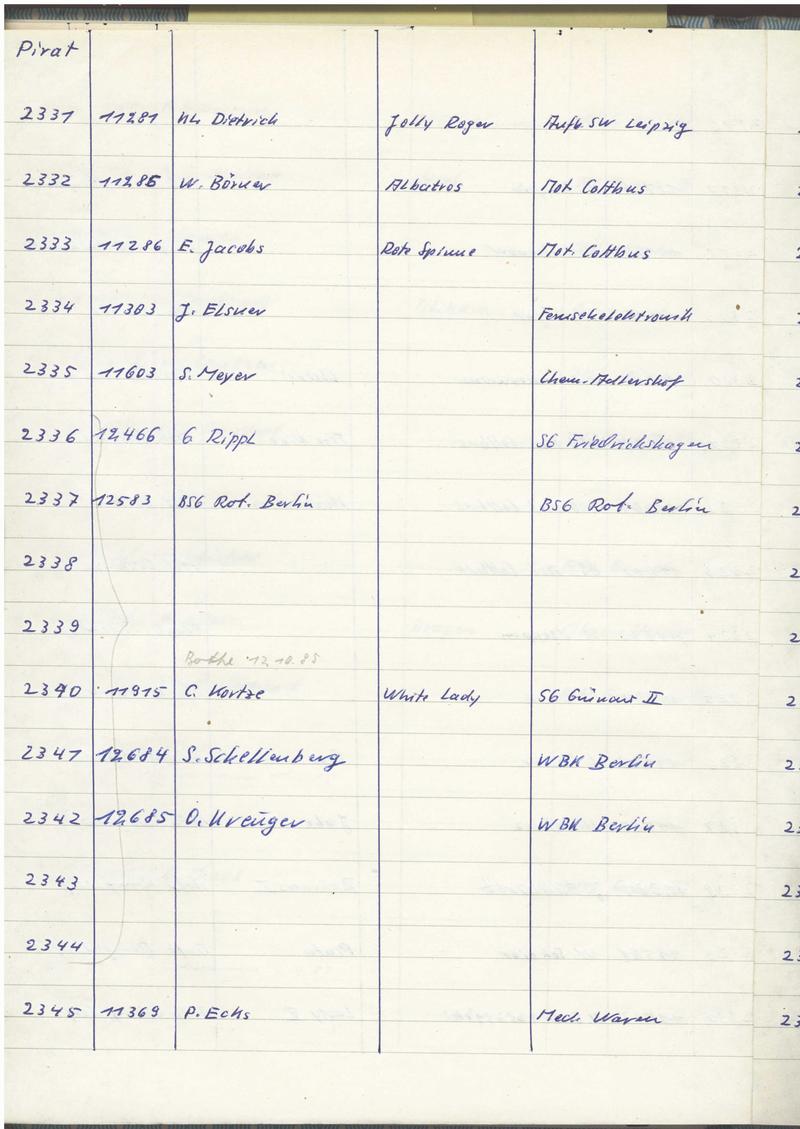 Pirat
2331 11281 Dietrich Jolly Roger Aufb. SW Leipzig
2332 11285 W. Börner Albatros Mot. Cottbus
2333 11286 E. Jacobs Rote Spinne Mot. Cottbus
2334 11303 J. Elsner Fernsehelektronik
2335 11603 S. Meyer Chem. Adlershof
2336 12466 G Rippl SG Friedrichshagen
2337 12583 BSG Rot. Berlin BSG Rot. Berlin
2338
2339
Bothe 12.10.85
2340 11915 C. Kortze White Lady SG Grünau II
2341 12684 S. Schellenberg WBK Berlin
2342 12685 O. Kreuger WBK Berlin
2343
2344
2345 11369 P. Echs Med. Waren